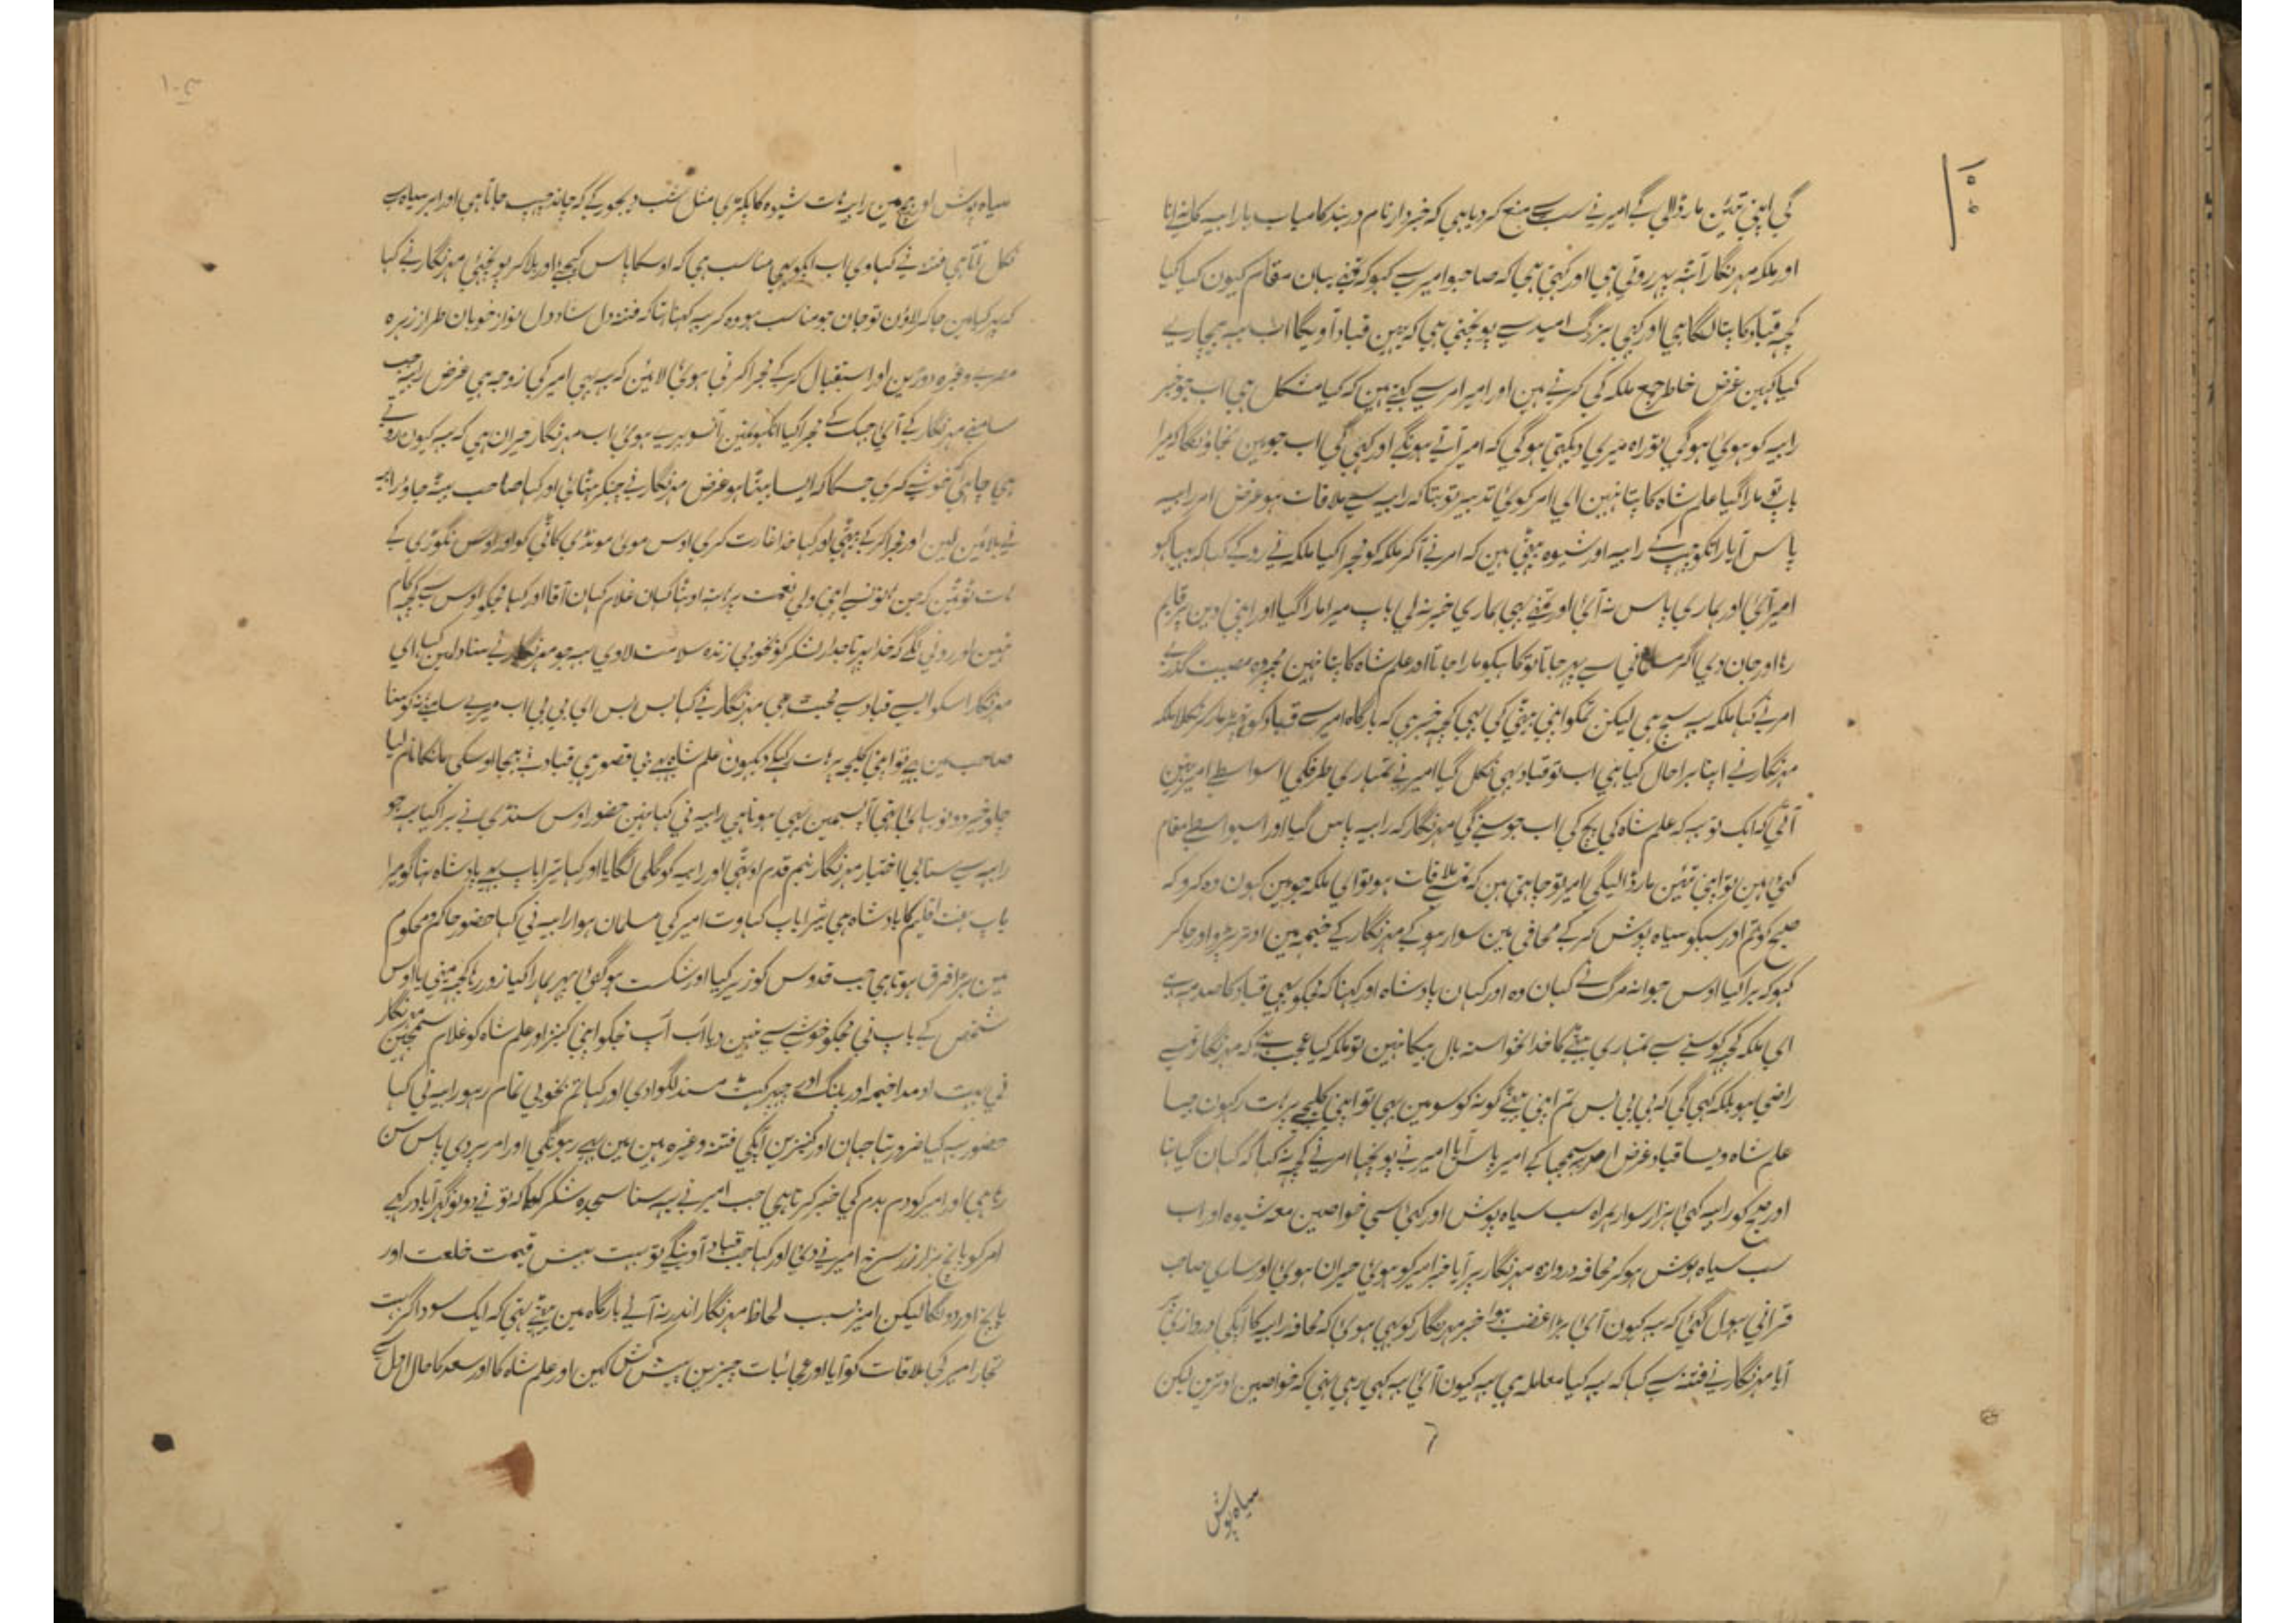 کی اپنی تئین مار ڈالی گے امیر نے سب سے منع کر دیا ہی کہ خبردار نام دربند کامیاب یا رابیہ کا نہ لینا
اور ملکہ مہرنگار آٹھ پہر روتی ہی اور کہتی ہی کہ صاحبو امیر سے کہو کہ تمنے یہان مقام کیون کیا کیا
کچہ قباد کا پتا لگا ہی اور کہی بزرگ امید سے پوچھتی ہی کہ یہین قباد آویگا اب یہ بیچارے
کیا کہین غرض خاطر جمع ملکہ کی کرتے ہین اور امیر امر سے کہتے ہین کہ کیا مشکل ہی اب جو خبر
رابیہ کو ہوئی ہوگی تو راہ میری دیکہتی ہوگی کہ امیر آتے ہونگے اور کہی گی اب جو مین نجاؤنگا کہ میرا
باپ تو مارا گیا علم شاہ کا پتا نہین ای امر کوئی تدبیر تو بتا کہ رابیہ سے ملاقات ہو غرض امر رابیہ
پاس آیا رات کو چپ کے رابیہ اور شیوہ بیٹھی ہین کہ امر نے آ کر ملکہ کو مجرا کیا ملکہ نے رو کے کہا کہ بہیا کہو
امیر آئی اور ہماری پاس نہ آئی اور تمنے بہی ہماری خبر نہ لی باپ میرا مارا گیا اور اپنی دین پر قایم
رہا اور جان دی اگر مسلمانی سے پہر جاتا تو کاہیکو مارا جاتا اور علم شاہ کا پتا نہین مجہہ وہ مصیبت گذری
امر نے کہا ملکہ یہ سچ ہی لیکن تمکو اپنی بیٹی کی بہی کچہ خبر ہی کہ بارگاہ امیر سے قباد کو تہپڑ مار کر نکلا ملکہ
مہرنگار نے اپنا برا حال کیا ہی اب تو قباد بہی نکل گیا امیر نے تمہاری طرفکی اسواسطے امیر نہین
آئی کہ ایک تو یہ کہ علم شاہ کی بچ کی اب جو سنے گی مہرنگار کہ رابیہ پاس گیا اور اسواسطے مقام
کہی ہین تو اپنی تئین مار ڈالیگی امیر تو چاہتی ہین کہ تمسے ملاقات ہو تو ای ملکہ جو مین کہون وہ کرو کہ
صبح کو تم اور سبکو سیاہ پوش کر کے محافی مین سوار ہو کے مہرنگار کے خیمہ مین اوتر پڑو اور جا کر
کہو کہ برا کیا اوس جوانہ مرگ نے کہان وہ اور کہان بادشاہ اور کہنا کہ مجکو بہی قباد کا صدمہ ہے
ای ملکہ کچہ کوسنے سے تمہاری بیٹے کا خدا نخواستہ بال بیکا نہین تو ملکہ کیا عجب ہے کہ مہرنگار تمسے
راضی ہو بلکہ کہی گی کہ بی بی بس تم اپنی بیٹے کو نہ کوسو مین بہی تو اپنی کلیجے پر ہات رکہون جیسا
علم شاہ ویسا قباد غرض امر یہ سمجہا کے امیر پاس آیا امیر نے پوچہا امر نے کچہ نہ کہا کہ کہان گیا تہا
اور صبح کو رابیہ کہی ہزار سوار ہمراہ سب سیاہ پوش اور کہی اسی خواصین معہ شیوہ اور اب
سب سیاہ پوش ہو کر محافہ دروازہ مہرنگار پر آیا خبر امیر کو ہوئی حیران ہوئی اور ساری صاحب
قرانی بہول گئی کہ یہ کیون آئی بڑا غضب ہوا خبر مہرنگار کو بہی ہوئی کہ محافہ رابیہ کا آپکی دروازی پر
آیا مہرنگار نے فتنہ سے کہا کہ یہ کیا معاملہ ہی یہ کیون آئی یہ کہی رہی تہی کہ خواصین اوترین لیکن
سیاہ پوش
سیاہ پوش اور بیچ مین رابیہ ہات شیوہ کا پکڑی مثل شب دیجور کے کہ چاند چہپ جاتا ہی اور ابر سیاہ سے
نکل آتا ہی فتنہ نے کہا وی اب آپکو یہی مناسب ہی کہ اوسکا پاس کیجئے اور بلا کر پوچہئی مہرنگار نے کہا
کہ پہر کیا مین جا کہ لاؤن تو جان جو مناسب ہو وہ کر یہ کہنا تہا کہ فتنہ دل شاد دل نواز خوبان طراز زہرہ
مصری وغیرہ دوڑین اور استقبال کر کے مجرا کرتی ہوئی لائین کہ یہ بہی امیر کی زوجہ ہی غرض رابیہ جب
سامنے مہرنگار کے آئی جہک کے مجرا کیا آنکہونمین آنسو بہرے ہوئی اب مہرنگار حیران ہی کہ یہ کیون روتے
ہی چاہی خوشی کری جسکا کہ ایسا بیٹا ہو غرض مہرنگار نے جبکر بٹہائی اور کہا صاحب بیٹہ جاؤ رابیہ
نے بلائین لین اور مجرا کر کے بیٹہی اور کہا خدا غارت کری اوس موئی مونڈی کاٹی کو اور اوس نگوڑی کے
ہات ٹوٹین کہ جن ہاتونسے اپنی ولی نعمت پر ہات اوٹہا کہان غلام کہان آقا اور کہا مجکو اوس سے کچہ کام
نہین اور رونی لگے کہ خدا میر تاجدار لشکر کو بخوبی زندہ سلامت لاوی یہ جو مہرنگار نے سنا دلمین کہا ای
مہرنگار اسکو ایسے قباد سے محبت ہی مہرنگار نے کہا بس بس ای بی بی اب میرے سامنے نہ کوسنا
صاحب مین بہی تو اپنی کلیجہ پر ہات رکہکے دیکہون علم شاہ بے بی قصور ہی قباد نے بیجا اوسکی مانکا نام لیا
چلو خیر دونو بہائی اپنی آپسمین یہی ہوتا ہی رابیہ نی کہا نہین حضور اوس سنڈی نے برا کیا یہ جو
رابیہ سے سنا بی اختیار مہرنگار نیم قدم اوٹہی اور رابیہ کو گلی لگایا اور کہا تیرا باپ بہی بادشاہ تہا گو میرا
باپ ہفت اقلیم کا بادشاہ ہی تیرا باپ کہا وت امیر کی مسلمان ہوا رابیہ نی کہا حضور حاکم و محکوم
مین بڑا فرق ہوتا ہی جب قدوس کو زیر کیا اور شکست ہو گئی پہر ہمارا کیا زور رہا کچہ مینی یا اوس
شخص کے باپ نی مجکو خوشے سے نہین دیا اب آپ مجکو اپنی کنیز اور علم شاہ کو غلام سمجہین مہرنگار
نی بہت اومدا خیمہ اور پلنگ اور چہپر کہٹ مسند لگوا دی اور کہا تم بخوبی تمام رہو رابیہ نی کہا
حضور یہ کیا ضرور تہا جہان اور کنیزین آپکی فتنہ وغیرہ ہین مین بہی رہونگی اور امر پردی پاس سن
رہا ہی اور امیر کو دم بدم کی خبر کرتا ہی جب امیر نے یہ سنا سجدہ شکر کیا کہ تو نے دونو گہر آباد رکہے
امر کو پانچ ہزار زر سرخ امیر نے دئی اور کہا جب قباد آوینگے تو بہت بیش قیمت خلعت اور
پانچ اور دونگا لیکن امیر بسبب لحاظ مہرنگار اندر نہ آئے بارگاہ مین بیٹہے تہی کہ ایک سوداگر بہت
تجار امیر کی ملاقات کو آیا اور عجائبات چیزین پیش کش کین اور علم شاہ کا اور سعد کا حال اہل سے